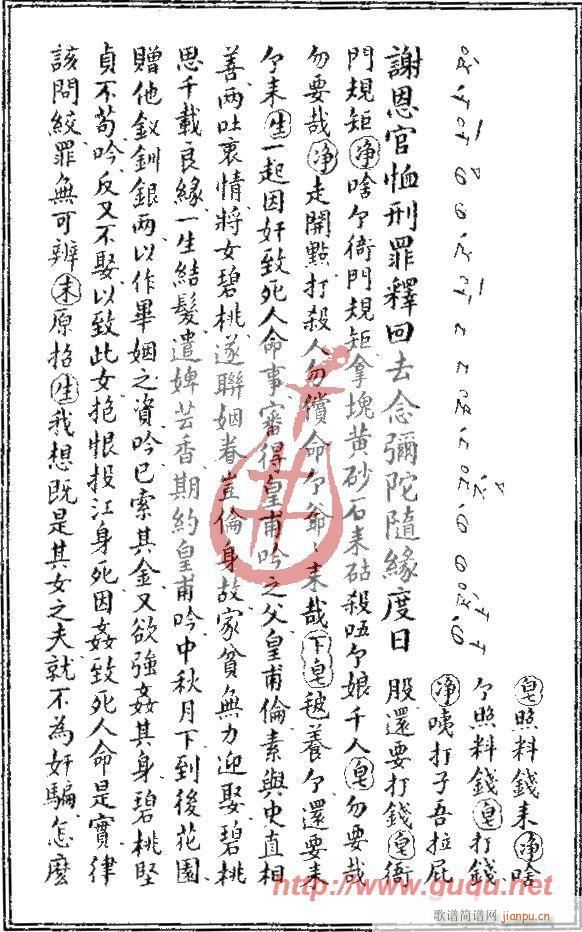 謝恩官恤刑罪釋回去念彌陀隨緣度日
皂照料錢耒淨啥
个照料錢皂打錢
淨咦打子吾拉屁
股還要打錢皂衙
門規矩淨啥个衙門規矩拿塊黄砂石耒砝殺唔个娘千人皂勿要哉
勿要哉淨走開點打殺人勿償命个爺〻耒哉下皂毬養个還要耒
个耒生一起因奸致死人命事審得皇甫吟之父皇甫倫素與史直相
善兩吐衷情將女碧桃遂聯姻眷豈倫身故家貧無力迎娶碧桃
思千載良緣一生結髮遣婢芸香期約皇甫吟中秋月下到後花園
贈他釵釧銀兩以作畢姻之資吟已索其金又欲強姦其身碧桃堅
貞不苟吟反又不娶以致此女抱恨投江身死因姦致死人命是實律
該問絞罪無可辨末原招生我想既是其女之夫就不為奸騙怎麼
http://www.guqu.net
歌谱简谱网
jianpu.cn